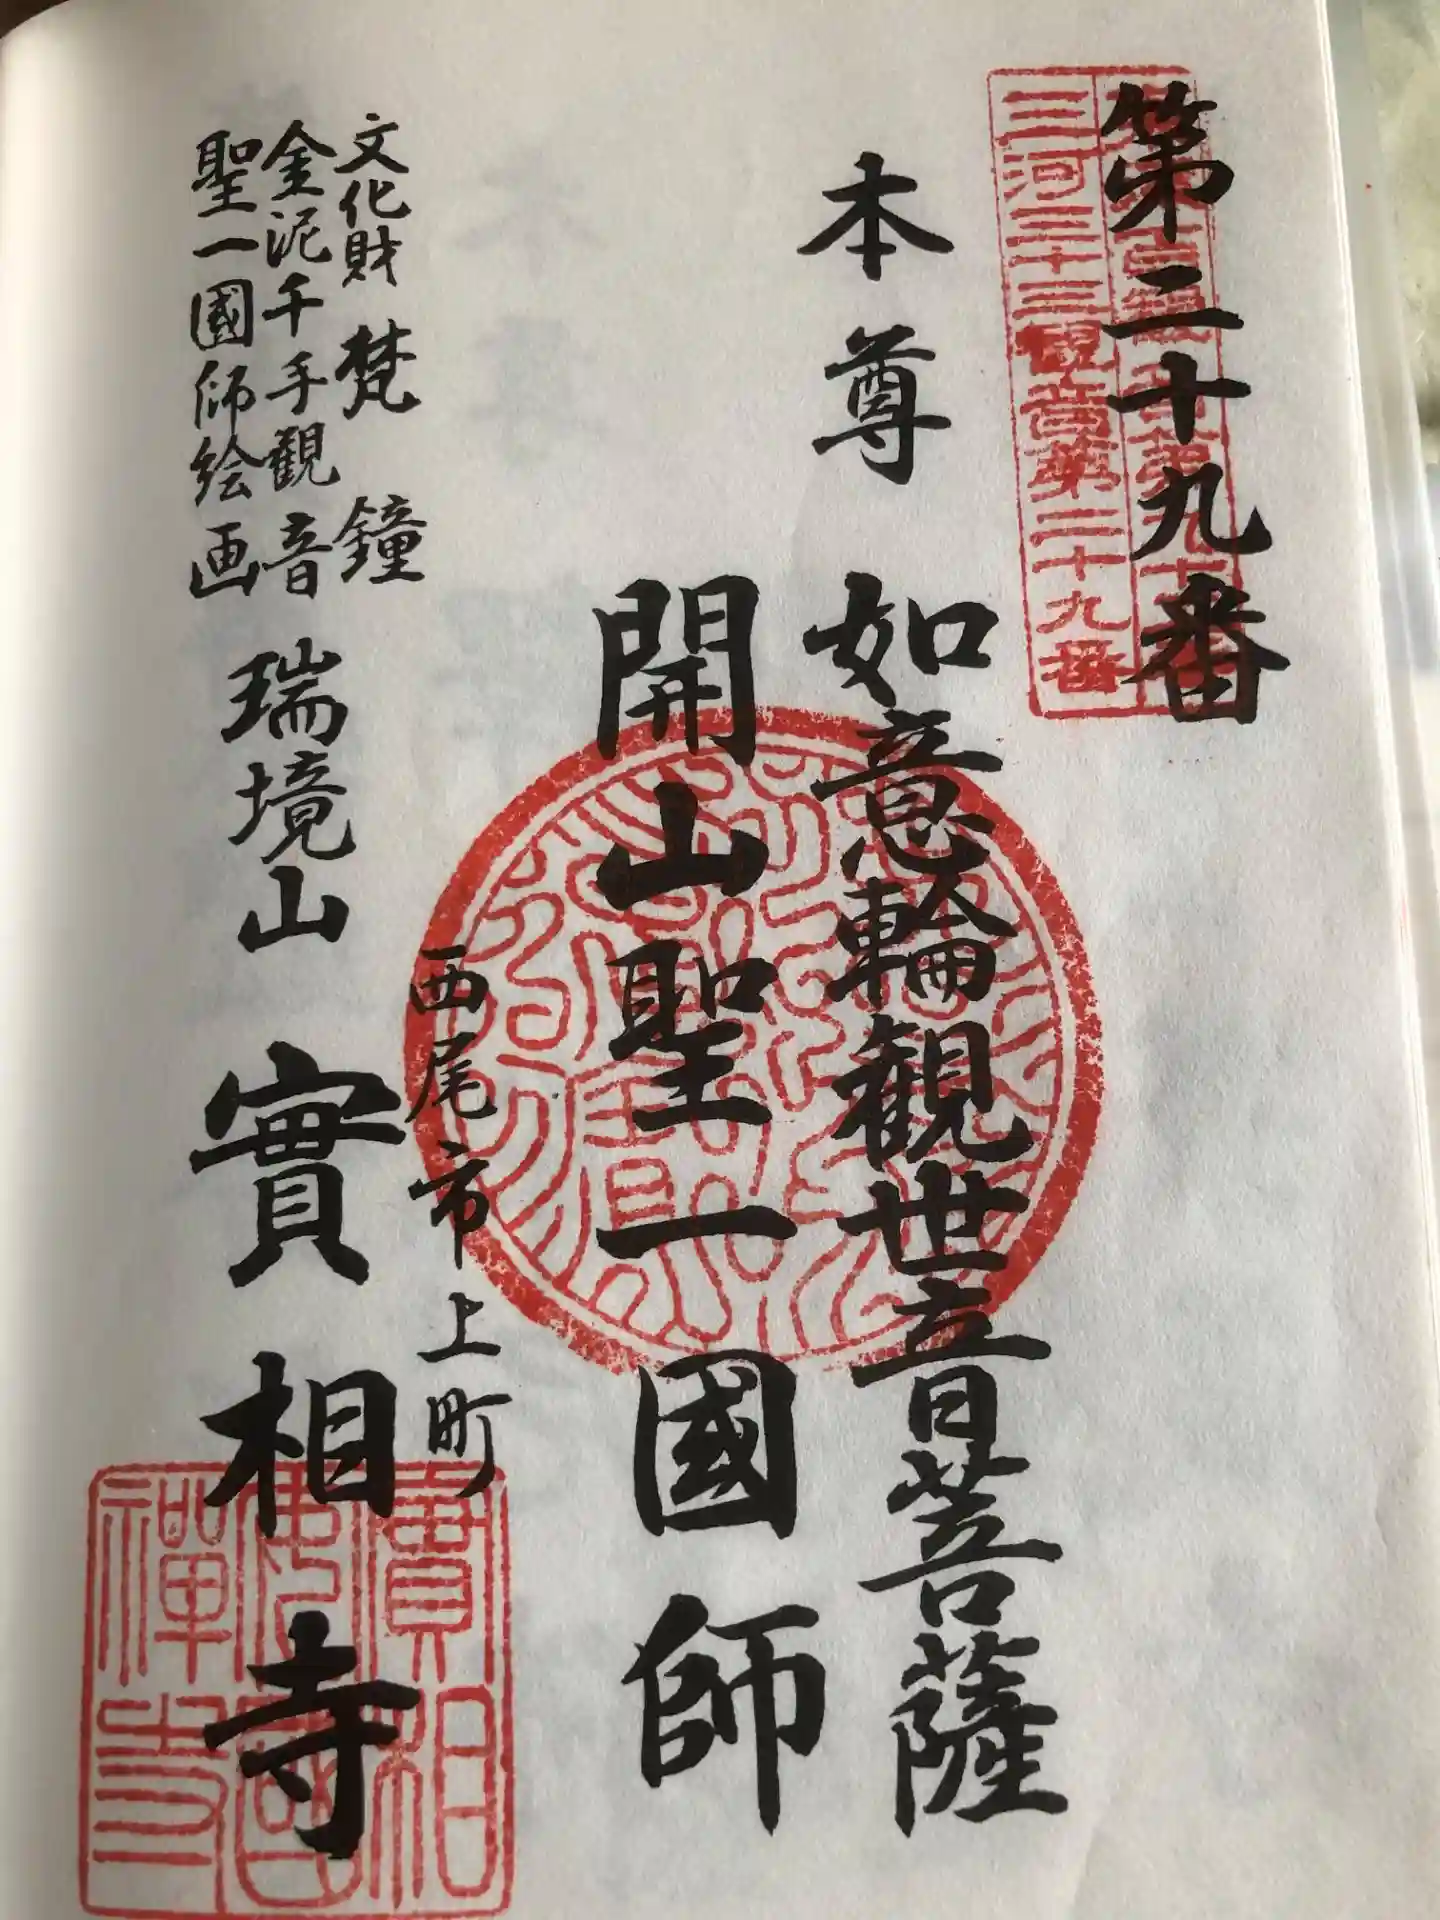 第二十九番
三河三十三観音第二十九番
本尊 如意輪観世音菩薩
開山聖一國師
西尾市上町
文化財 梵鐘
金泥千手観音
聖一國師绘画
瑞境山 實相寺
實相
安國
禅寺